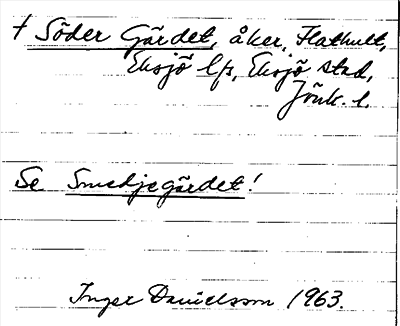 † Söder Gärdet, åker, Flathult,
Eksjö lfs, Eksjö stad,
Jönk. l.
Se Smedjegärdet!
Inger Danielsson 1963.